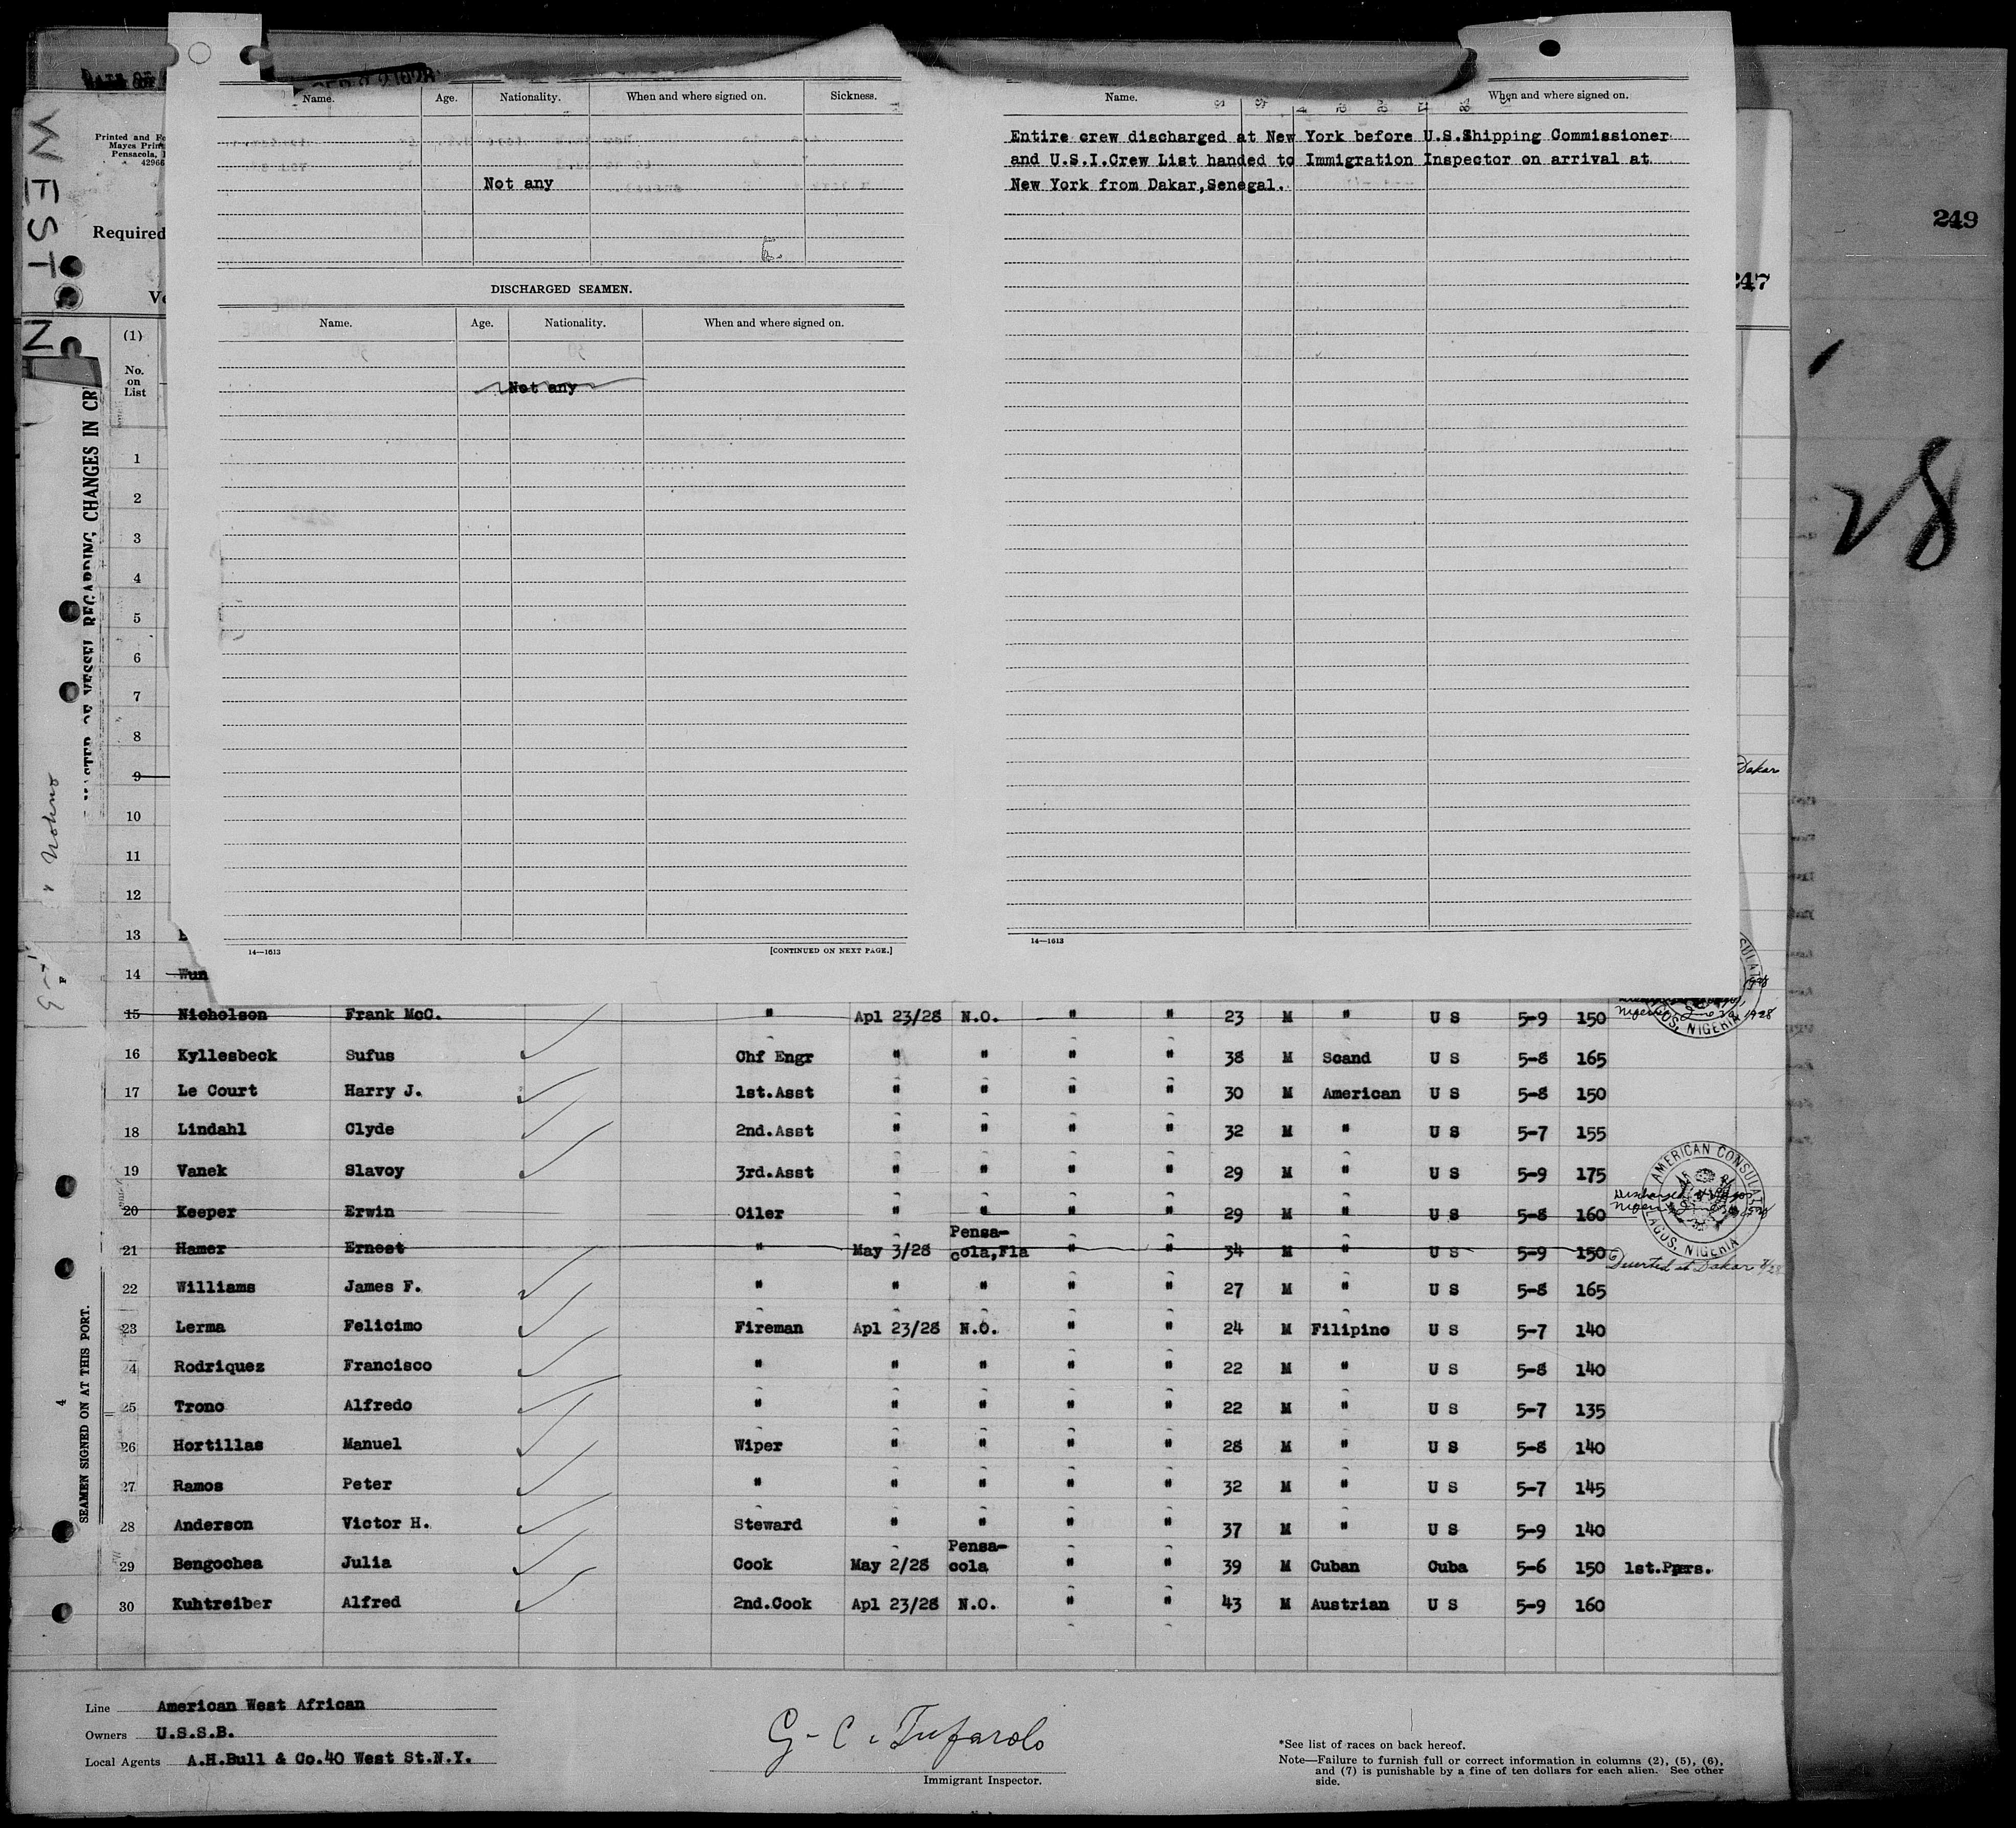 249
247
28
WEST N
Printed and Fo
Mayes Prin
Pensacola,
4296
Required
(1)
No.
on
List
CHANGES IN CR
SEAMEN SIGNED ON AT THIS PORT.
4
Name. Age. Nationality. When and where signed on. Sickness.
Not any
DISCHARGED SEAMEN.
Name. Age. Nationality. When and where signed on.
Not any
14—1613 [CONTINUED ON NEXT PAGE.]
Name. When and where signed on.
Entire crew discharged at New York before U.S.Shipping Commissioner
and U.S.I.Crew List handed to Immigration Inspector on arrival at
New York from Dakar,Senegal.
14—1613
1
2
3
4
5
6
7
8
9 Dakar
10
11
12
13
14 Wun
15 Nicholson Frank McC. " Apl 23/28 N.O. " " 23 M " U S 5-9 150
16 Kyllesbeck Sufus Chf Engr " " " " 38 M Scand U S 5-8 165
17 Le Court Harry J. 1st.Asst " " " " 30 M American U S 5-8 150
18 Lindahl Clyde 2nd.Asst " " " " 32 M " U S 5-7 155
19 Vanek Slavoy 3rd.Asst " " " " 29 M " U S 5-9 175
AMERICAN CONSULATE
LAGOS, NIGERIA
20 Keeper Erwin Oiler " " " " 29 M " U S 5-8 160
21 Hamer Ernest " May 3/28 Pensa-
cola,Fla " " 34 M " U S 5-9 150 Deserted at Dakar
22 Williams James F. " " " " " 27 M " U S 5-8 165
23 Lerma Felicimo Fireman Apl 23/28 N.O. " " 24 M Filipino U S 5-7 140
24 Rodriquez Francisco " " " " " 22 M " U S 5-8 140
25 Trono Alfredo " " " " " 22 M " U S 5-7 135
26 Hortillas Manuel Wiper " " " " 28 M " U S 5-8 140
27 Ramos Peter " " " " " 32 M " U S 5-7 145
28 Anderson Victor H. Steward " " " " 37 M " U S 5-9 140
29 Bengochea Julia Cook May 2/28 Pensa-
cola " " 39 M Cuban Cuba 5-6 150 1st.Pprs.
30 Kuhtreiber Alfred 2nd.Cook Apl 23/28 N.O. " " 43 M Austrian U S 5-9 160
Line American West African
Owners U.S.S.B.
Local Agents A.H.Bull & Co.40 West St.N.Y.
G-C. Tufarolo
Immigrant Inspector.
*See list of races on back hereof.
Note—Failure to furnish full or correct information in columns (2), (5), (6),
and (7) is punishable by a fine of ten dollars for each alien. See other
side.